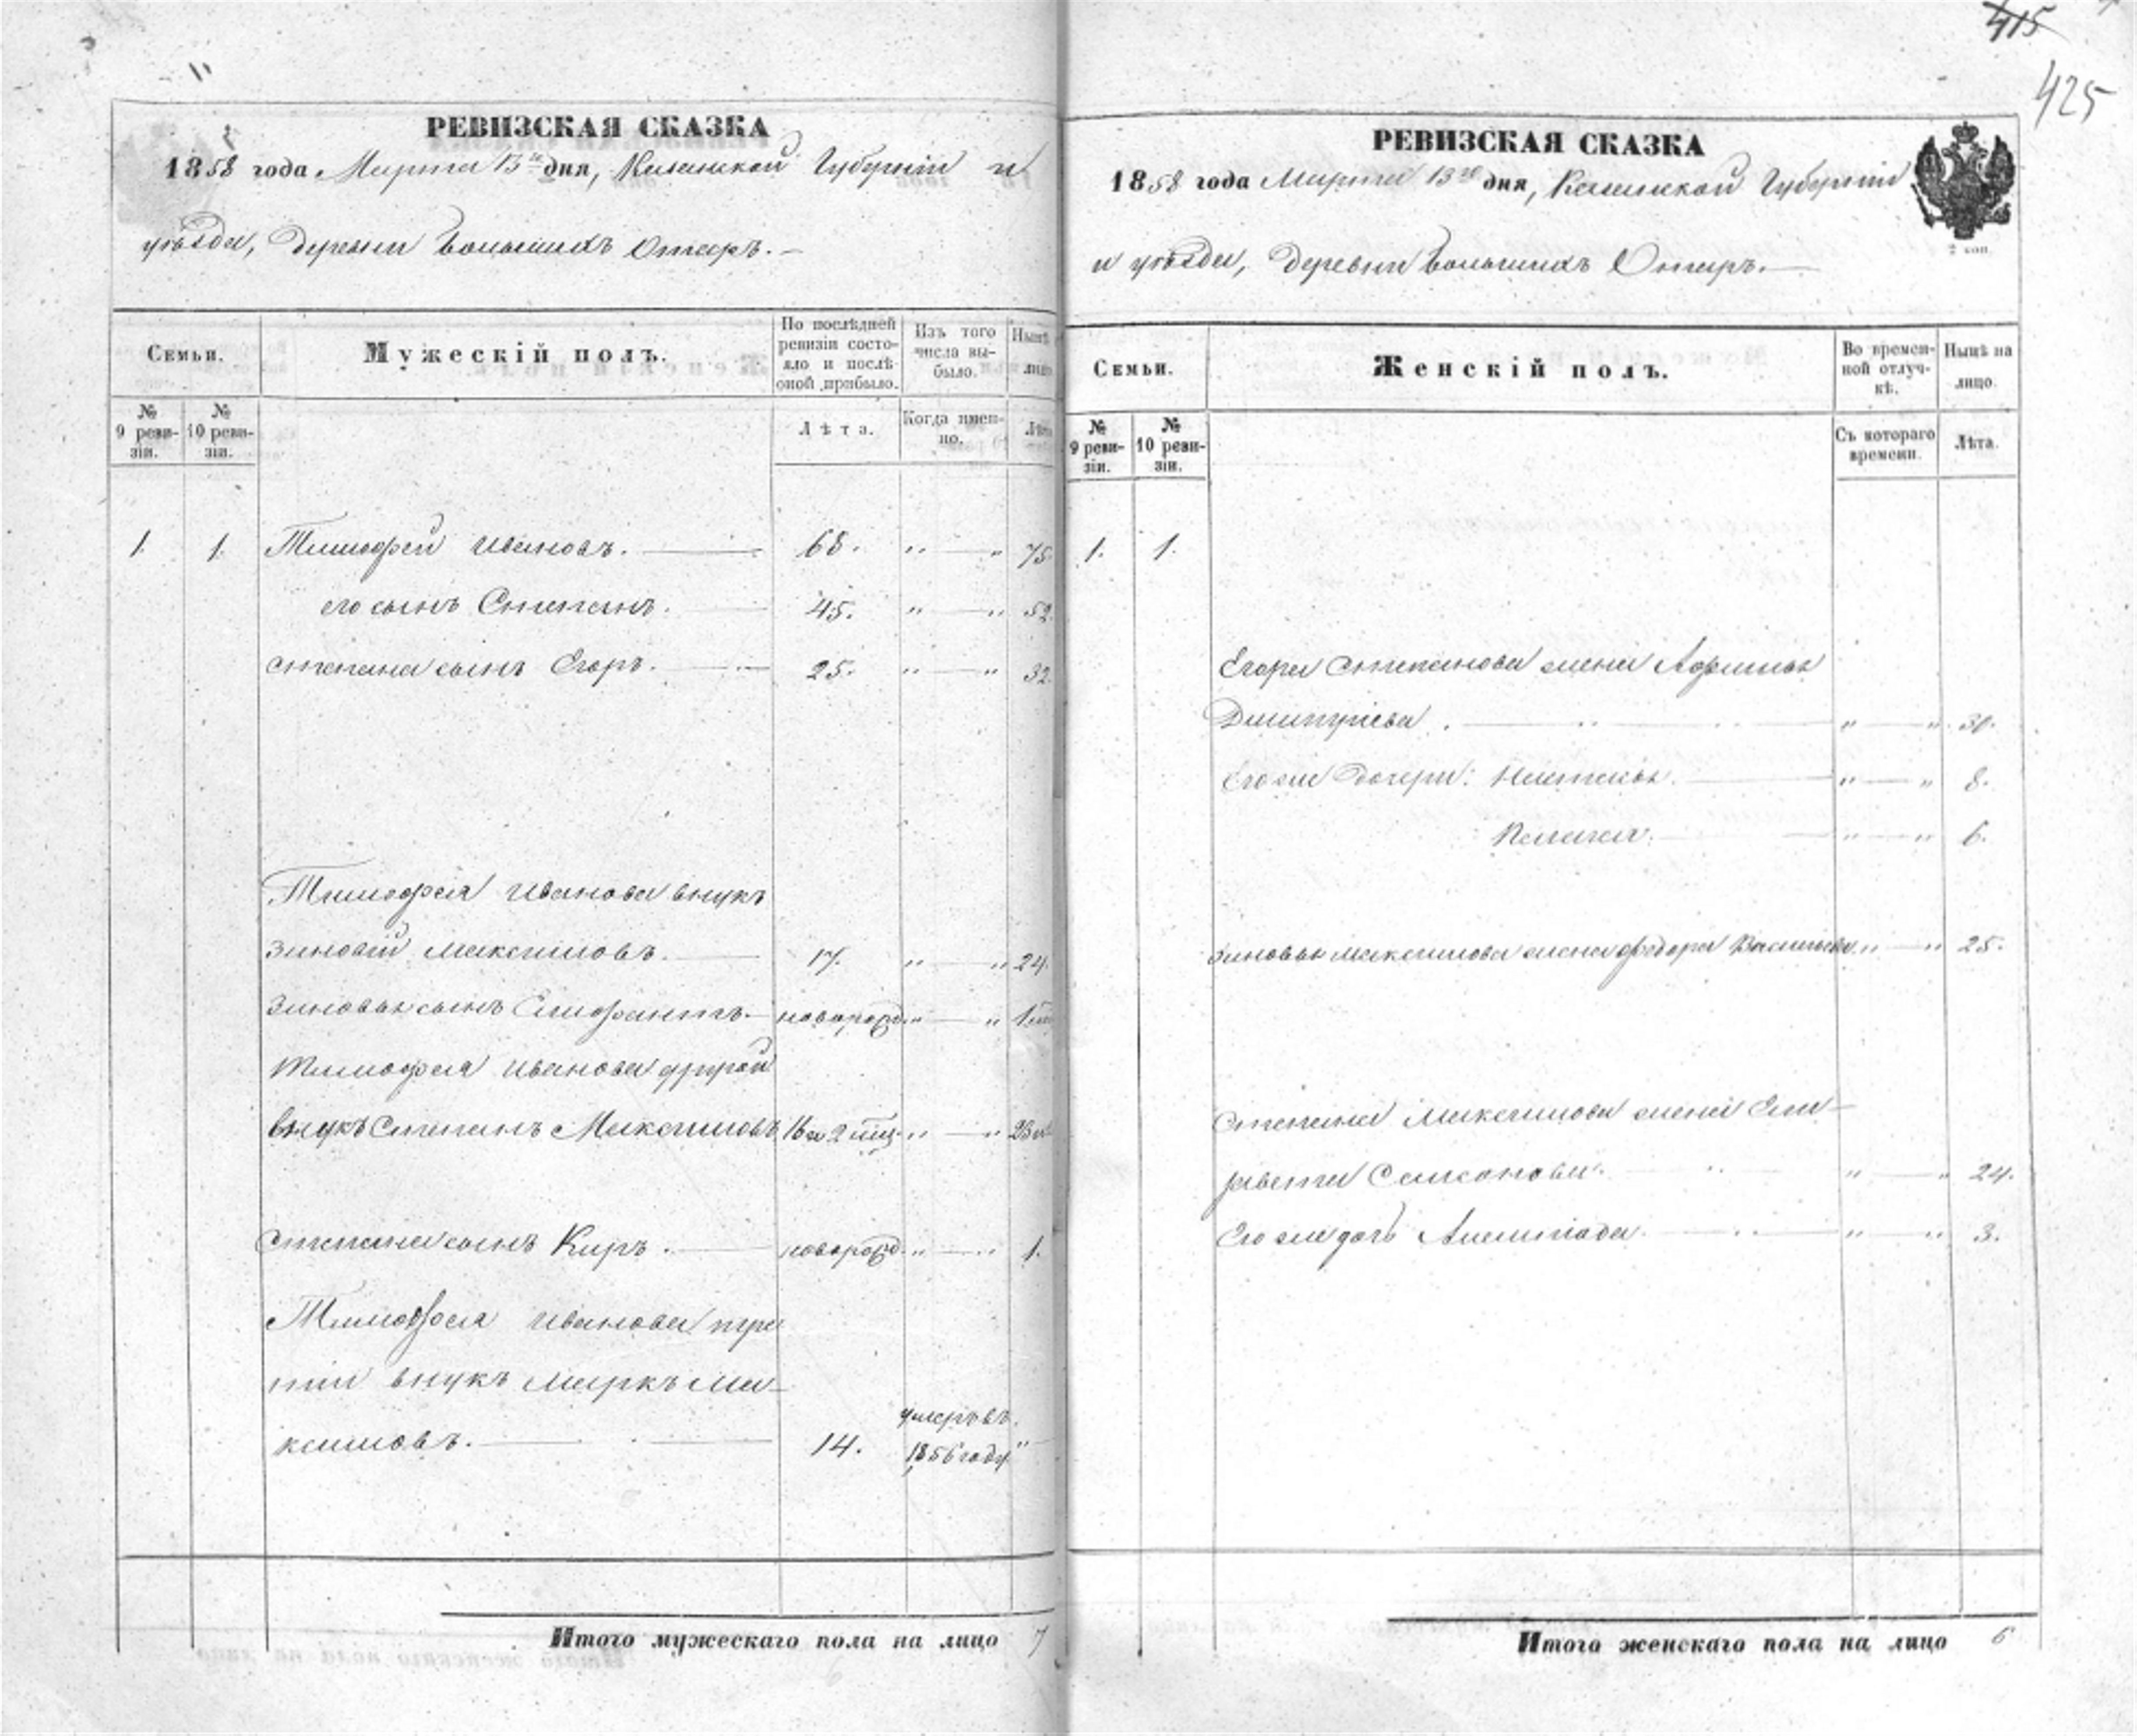 415
425
РЕВИЗСКАЯ СКАЗКА
1858 года Марта 13го дня, Казанской Губерніи и
уѣзда, деревни Большихъ Отаръ.
Семьи.
Мужескій полъ.
По послѣдней ревизіи состояло и послѣ оной прибыло.
Изъ того числа выбыло.
Нынѣ
лицо
№ 9 ревизіи.
№ 10 ревизіи.
Лѣта.
Когда именно.
Лѣта
1. 1. Тимофей Ивановъ. 68. " — " 75.
его сынъ Степанъ. 45. " — " 52.
Степана сынъ Егоръ. 25. " — " 32.
Тимофея Иванова внукъ
Зиновій Максимовъ. 17. " — " 24.
Зиновья сынъ Елифантъ. новорожд. " — " 1
Тимофея Иванова другой
внукъ Степанъ Максимовъ 16 и 2 мѣс. " — " 23
Степана сынъ Киръ. новорожд. " — " 1.
Тимофея Иванова тре
тій внукъ Маркъ Ма-
ксимовъ. 14. умеръ въ 1856 году "
Итого мужескаго пола на лицо 7
РЕВИЗСКАЯ СКАЗКА
1858 года Марта 13го дня, Казанской Губерніи
и уѣзда, деревни Большихъ Отаръ.
2 коп.
Семьи.
Женскій полъ.
Во временной отлучкѣ.
Нынѣ на лицо.
№ 9 ревизіи.
№ 10 ревизіи.
Съ котораго времени.
Лѣта.
1. 1.
Егора Степанова жена Афимья
Дмитріева. " — " 30.
Его же дочери: Настасья. " — " 8.
Палагея. " — " 6.
Зиновья Максимова жена Федора Васильева " — " 25.
Степана Максимова жена Ели-
завета Самсонова. " — " 24.
Его же дочь Алимпіада. " — " 3.
Итого женскаго пола на лицо 6